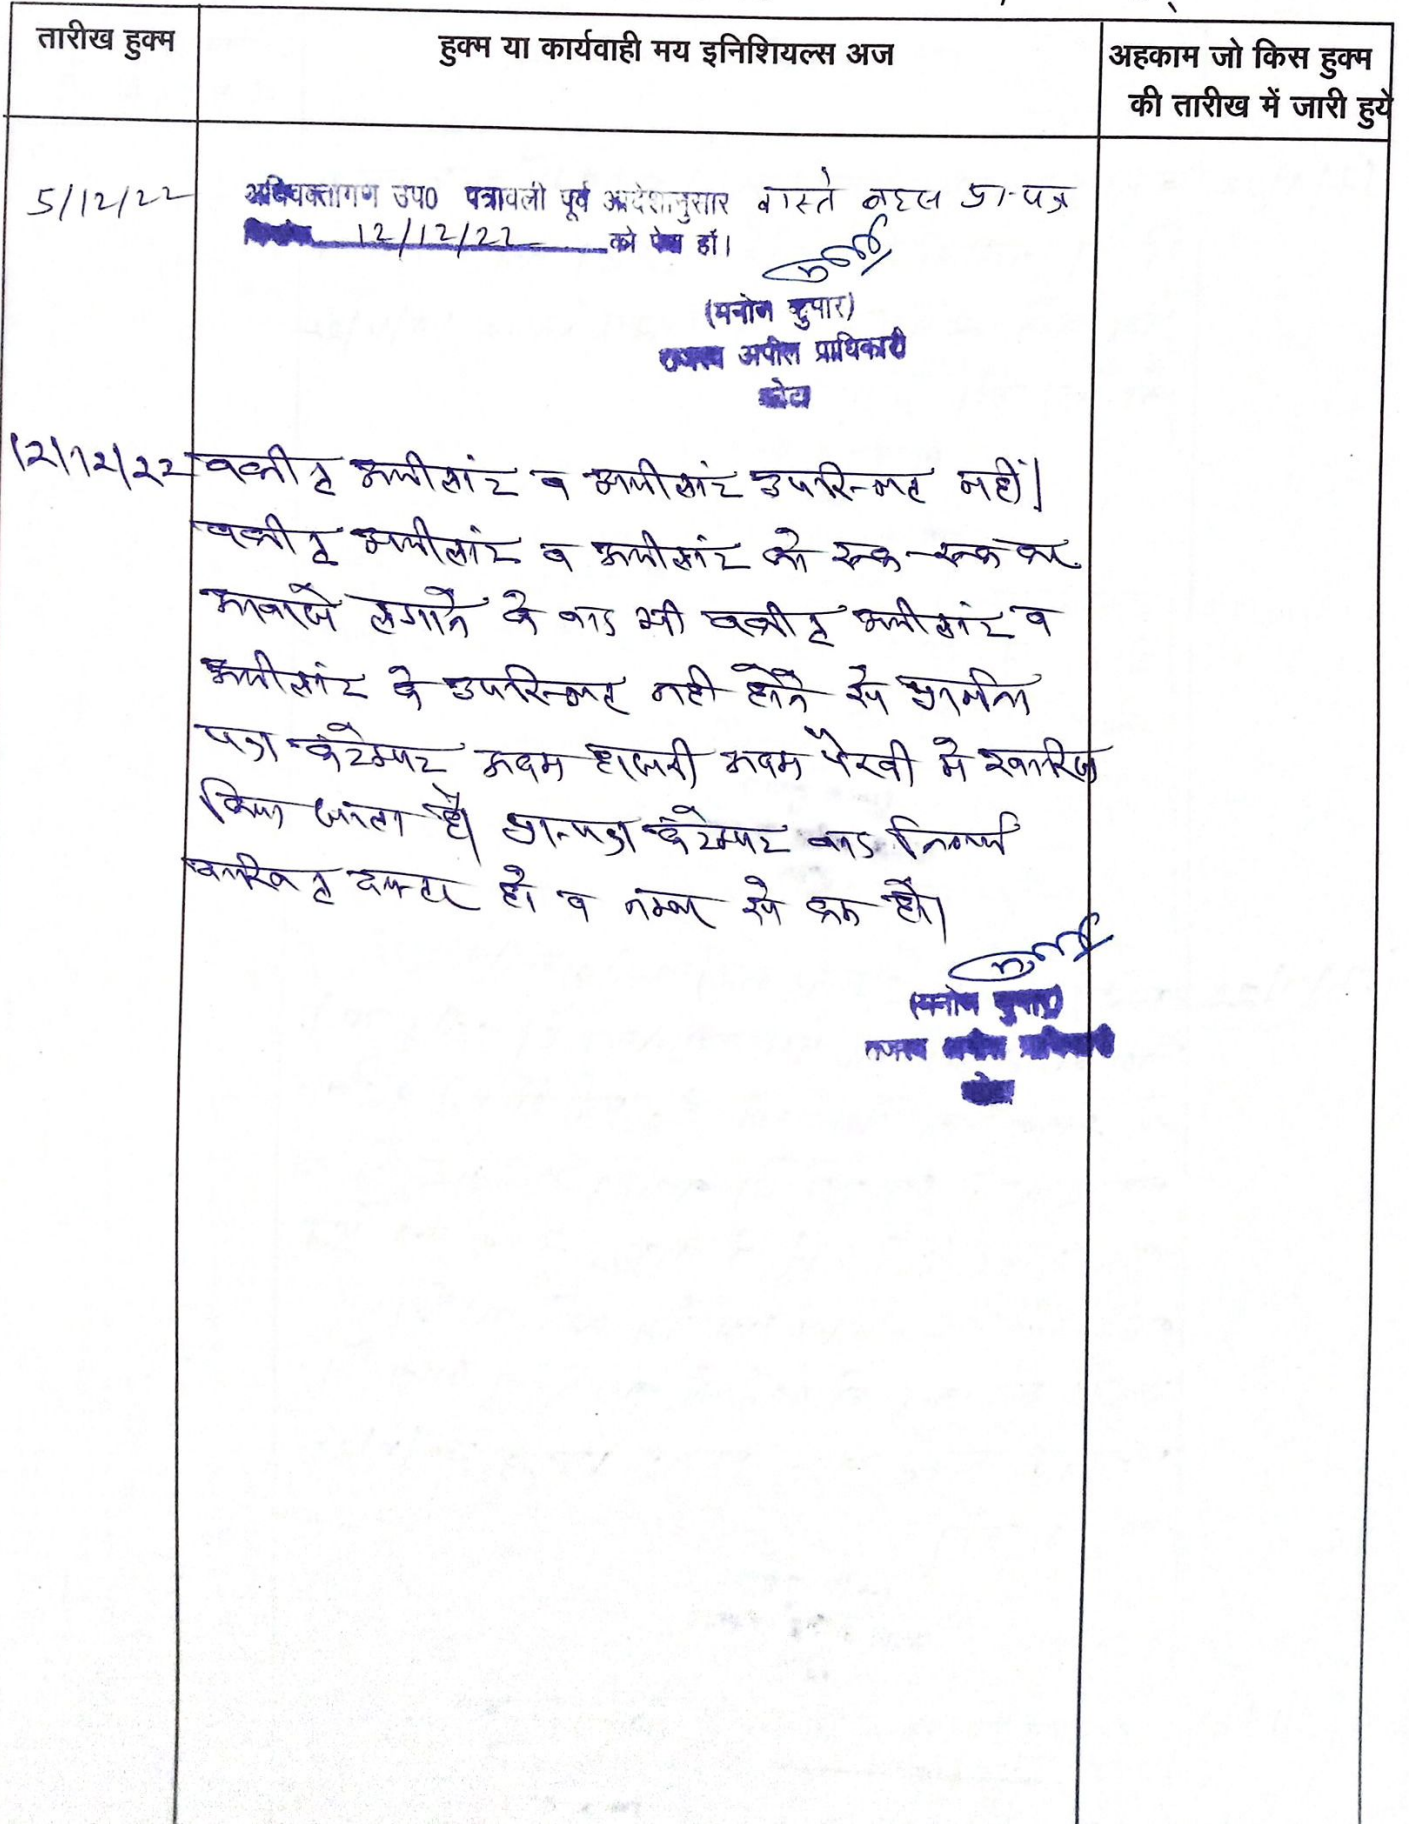 तारीख हुक्म
हुक्म या कार्यवाही मय इनिशियल्स अज
अहकाम जो किस हुक्म
की तारीख में जारी हुये
5/12/22
अधिवक्तागण उप0 पत्रावली पूर्व आदेशानुसार वास्ते बहस प्रा-पत्र
दिनांक 12/12/22 को पेश हों।
(मनोज कुमार)
राजस्व अपील प्राधिकारी
कोटा
12/12/22
वकील अपीलांट व अपीलांट उपस्थित नहीं।
वकील अपीलांट व अपीलांट को रूक-रूक कर
आवाजें लगाने के बाद भी वकील अपीलांट व
अपीलांट के उपस्थित नही होने से प्रार्थना
पत्र कंटेम्पट अदम हाजरी अदम पैरवी में खारिज
किया जाता है। प्रा-पत्र कंटेम्पट बाद निर्णय
दाखिल दफ्तर हो व नम्बर से कम हो।
(मनोज कुमार)
राजस्व अपील प्राधिकारी
कोटा